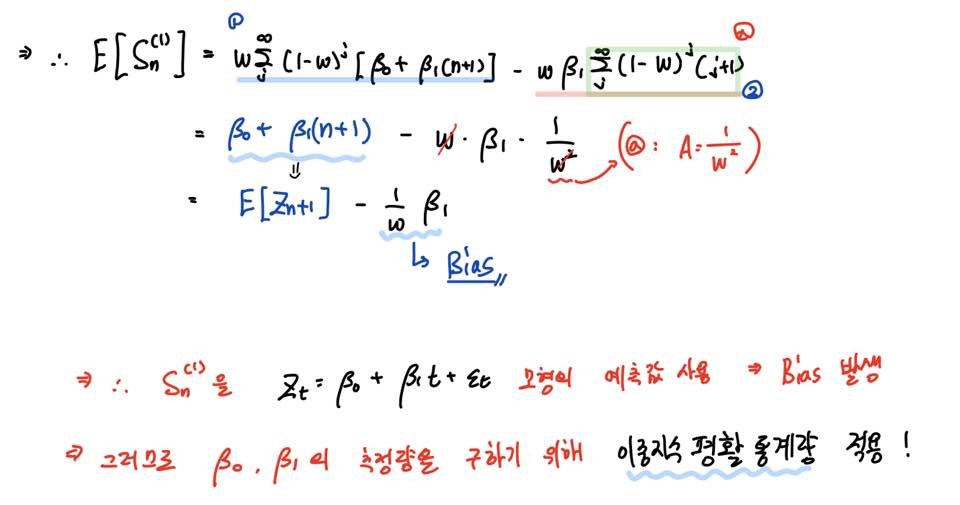 ⇒ ∴ E[Sn^(1)] = ① w∑_j^∞ (1-w)^j [β₀ + β₁(n+1)] - w β₁ ∑_j^∞ (1-w)^j (j+1) ⓐ ②
= β₀ + β₁(n+1) - w · β₁ · 1/w² (ⓐ : A = 1/w²)
⇓
= E[Zn+1] - 1/w β₁
↳ Bias
⇒ ∴ Sn^(1)을 Zt = β₀ + β₁t + εt 모형의 예측값 사용 ⇒ Bias 발생
⇒ 그러므로 β₀, β₁의 측정량을 구하기 위해 이중지수평활통계량 적용!